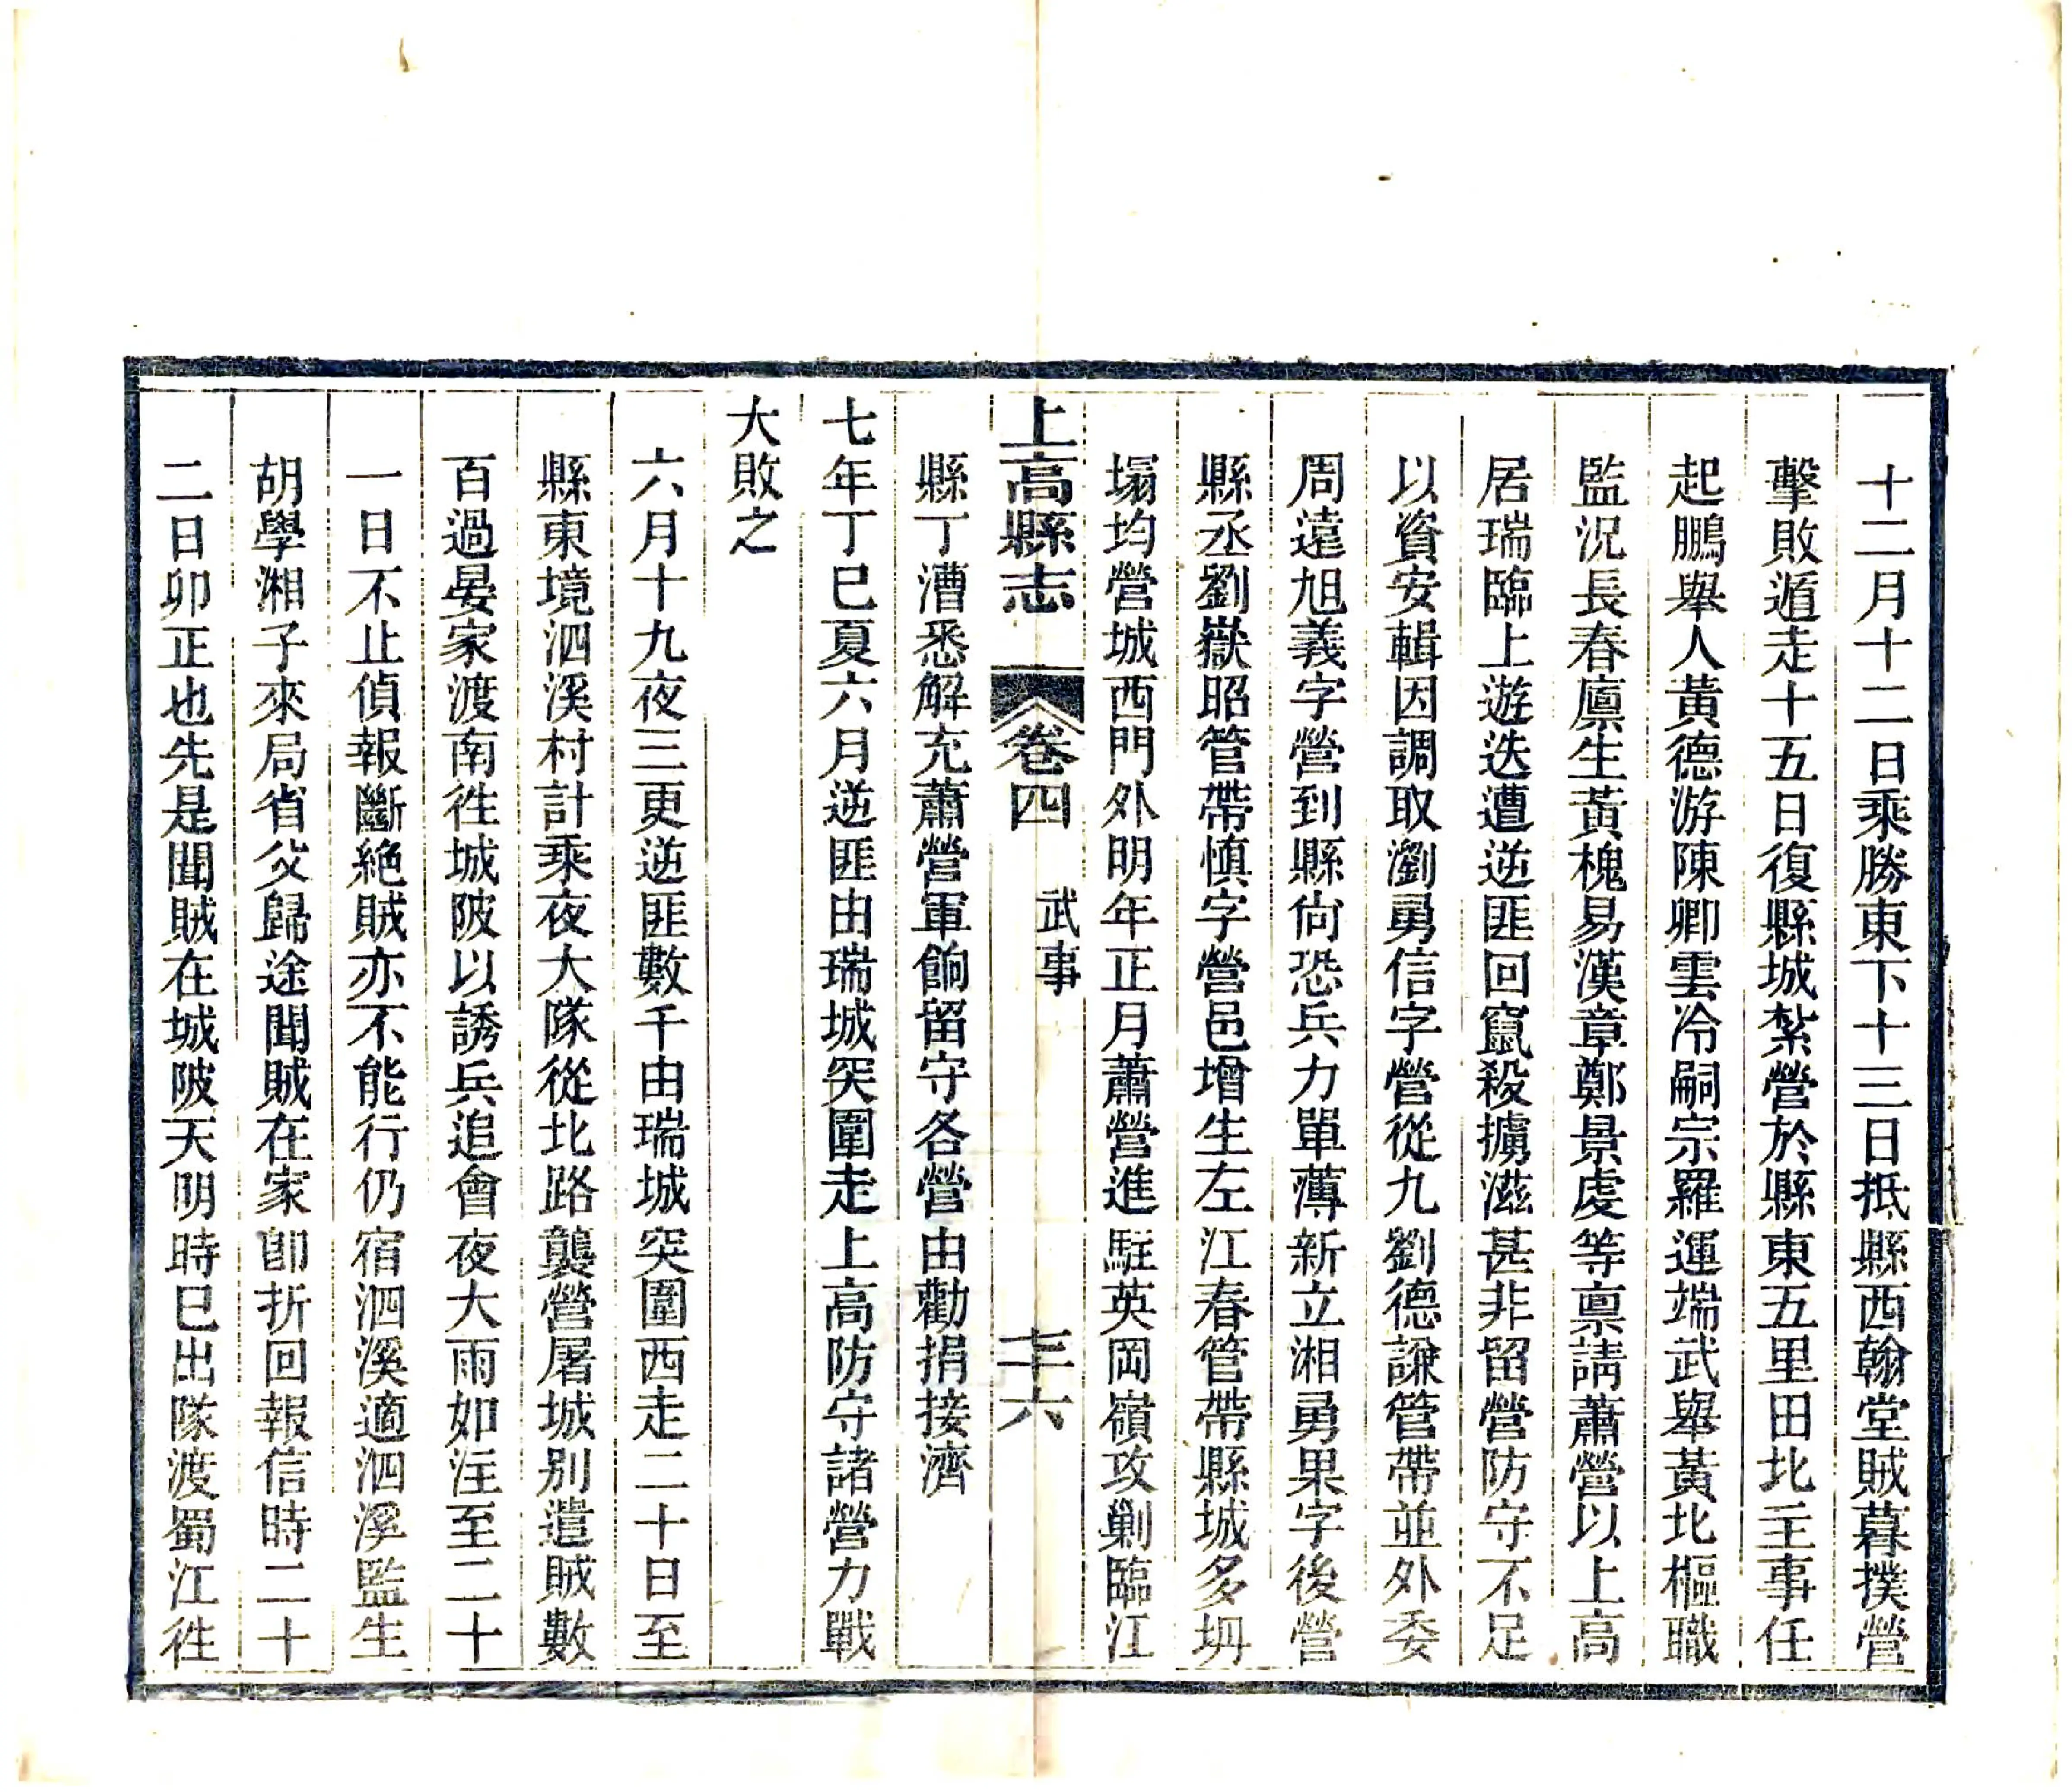 十二月十二日乘勝東下十三日抵縣西翰堂賊暮撲營
擊敗遁走十五日復縣城紮營於縣東五里田北主事任
起鵬舉人黃德游陳卿雲冷嗣宗羅運端武舉黃北樞職
監況長春廩生黃槐易漢章鄭景虔等禀請蕭營以上高
居瑞臨上遊迭遭逆匪回竄殺擄滋甚非留營防守不足
以資安輯因調取瀏勇信字營從九劉德謙管帶並外委
周遠旭義字營到縣尙恐兵力單薄新立湘勇果字後營
縣丞劉嶽昭管帶慎字營邑增生左江春管帶縣城多坍
塌均營城西門外明年正月蕭營進駐英岡嶺攻剿臨江
上高縣志 卷四 武事 七十六
縣丁漕悉解充蕭營軍餉留守各營由勸捐接濟
七年丁巳夏六月逆匪由瑞城突圍走上高防守諸營力戰
大敗之
六月十九夜三更逆匪數千由瑞城突圍西走二十日至
縣東境泗溪村計乘夜大隊從北路襲營屠城別遣賊數
百過晏家渡南徃城陂以誘兵追會夜大雨如注至二十
一日不止偵報斷絶賊亦不能行仍宿泗溪適泗溪監生
胡學湘子來局省父歸途聞賊在家卽折回報信時二十
二日卯正也先是聞賊在城陂天明時已出隊渡蜀江徃